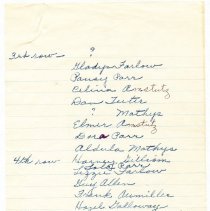 3rd row — ?
Gladys Farlow
Pansy Parr
Belinia Amstutz
Dan Tuttle
? Mathys
Elmer Amstutz
Dora Parr
Aldula Mathys
4th row Harvey Gilliam
Lola Parr
Lizzie Farlow
Guy Allen
Frank Numiller
Hazel Galloway